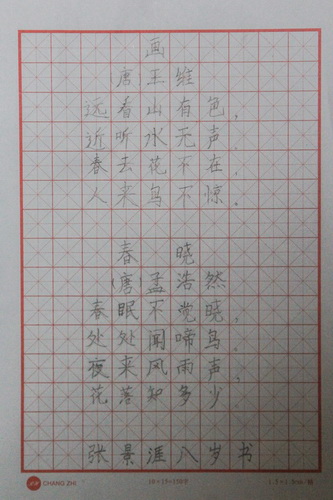 画
唐 王 维
远看山有色，
近听水无声
春去花不在，
人来鸟不惊．
春 晓
唐 孟浩然
春眠不觉晓，
处处闻啼鸟．
夜来风雨声，
花落知多少
张景涯八岁书
CHANG ZHI